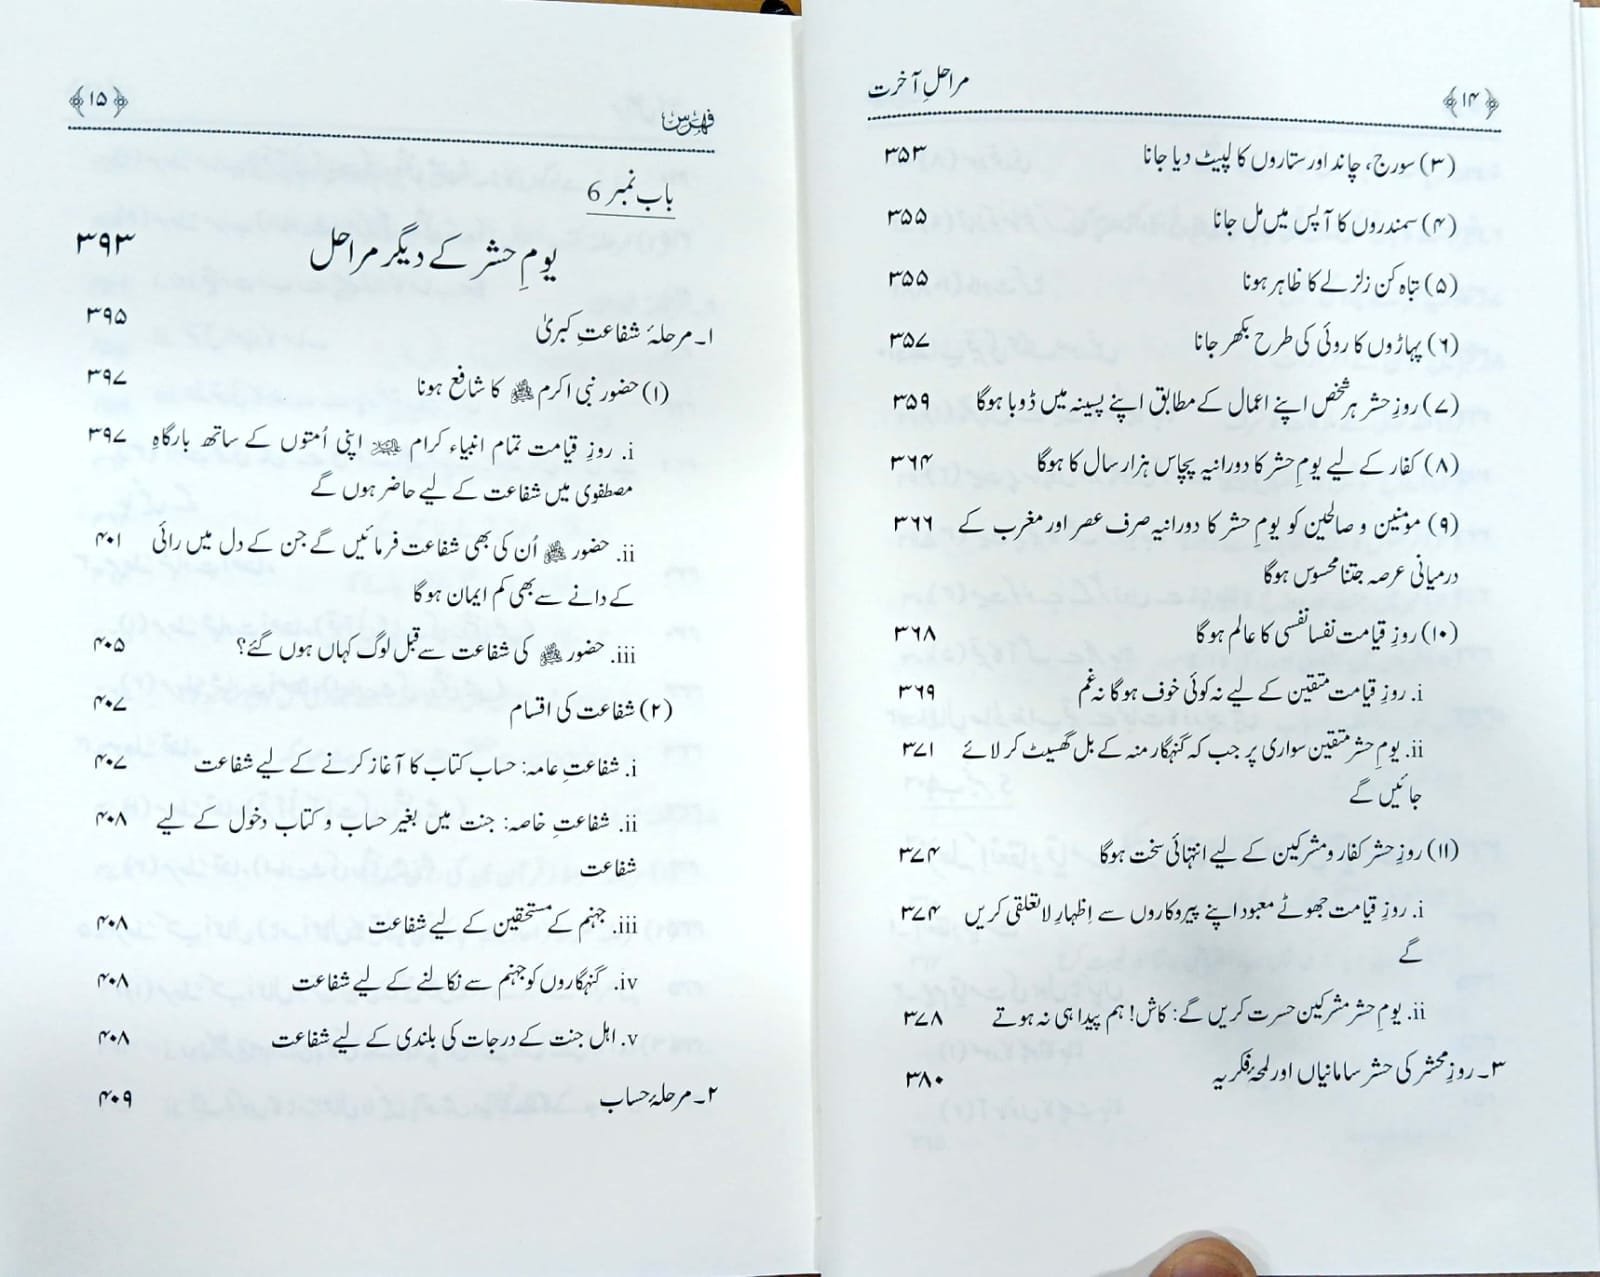 ﴿۱۴﴾ مراحلِ آخرت
(۳) سورج، چاند اور ستاروں کا لپیٹ دیا جانا ۳۵۳
(۴) سمندروں کا آپس میں مل جانا ۳۵۵
(۵) تباہ کن زلزلے کا ظاہر ہونا ۳۵۵
(۶) پہاڑوں کا روئی کی طرح بکھر جانا ۳۵۷
(۷) روزِ حشر ہر شخص اپنے اعمال کے مطابق اپنے پسینہ میں ڈوبا ہوگا ۳۵۹
(۸) کفار کے لیے یومِ حشر کا دورانیہ پچاس ہزار سال کا ہوگا ۳۶۴
(۹) مؤمنین و صالحین کو یومِ حشر کا دورانیہ صرف عصر اور مغرب کے ۳۶۶
درمیانی عرصہ جتنا محسوس ہوگا
(۱۰) روزِ قیامت نفسا نفسی کا عالم ہوگا ۳۶۸
i. روزِ قیامت متقین کے لیے نہ کوئی خوف ہوگا نہ غم ۳۶۹
ii. یومِ حشر متقین سواری پر جب کہ گنہگار منہ کے بل گھسیٹ کر لائے ۳۷۱
جائیں گے
(۱۱) روزِ حشر کفار و مشرکین کے لیے انتہائی سخت ہوگا ۳۷۴
i. روزِ قیامت جھوٹے معبود اپنے پیروکاروں سے اِظہارِ لاتعلقی کریں ۳۷۴
گے
ii. یومِ حشر مشرکین حسرت کریں گے: کاش! ہم پیدا ہی نہ ہوتے ۳۷۸
۳۔ روزِ محشر کی حشر سامانیاں اور لمحۂ فکریہ ۳۸۰
فہرس ﴿۱۵﴾
باب نمبر 6
یومِ حشر کے دیگر مراحل ۳۹۳
۱۔ مرحلۂ شفاعتِ کبریٰ ۳۹۵
(۱) حضور نبی اکرم ﷺ کا شافع ہونا ۳۹۷
i. روزِ قیامت تمام انبیاء کرام اپنی اُمتوں کے ساتھ بارگاہِ ۳۹۷
مصطفوی میں شفاعت کے لیے حاضر ہوں گے
ii. حضور ﷺ اُن کی بھی شفاعت فرمائیں گے جن کے دل میں رائی ۴۰۱
کے دانے سے بھی کم ایمان ہوگا
iii. حضور ﷺ کی شفاعت سے قبل لوگ کہاں ہوں گے؟ ۴۰۵
(۲) شفاعت کی اقسام ۴۰۷
i. شفاعتِ عامہ: حساب کتاب کا آغاز کرنے کے لیے شفاعت ۴۰۷
ii. شفاعتِ خاصہ: جنت میں بغیر حساب و کتاب دخول کے لیے ۴۰۸
شفاعت
iii. جہنم کے مستحقین کے لیے شفاعت ۴۰۸
iv. گنہگاروں کو جہنم سے نکالنے کے لیے شفاعت ۴۰۸
v. اہل جنت کے درجات کی بلندی کے لیے شفاعت ۴۰۸
۲۔ مرحلۂ حساب ۴۰۹